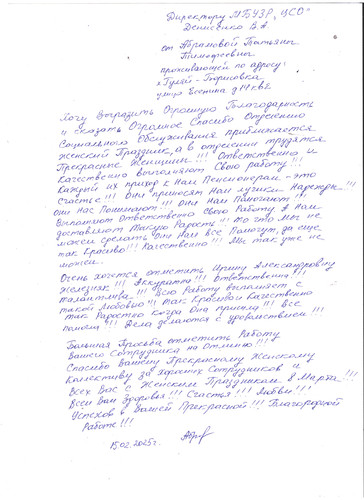 Директору МБУЗР "ЦСО"
Денисенко В.А
от Абрамовой Татьяны
Тимофеевны
проживающей по адресу:
х Гуляй-Борисовка
улица Есенина д 14 кв 2
Хочу Выразить Огромную Благодарность
и сказать Огромное Спасибо Отделению
Социального Обслуживания приближается
Женский Праздник, а в отделении трудятся
Прекрасные Женщины!!! Ответственно и
Качественно выполняют Свою работу!!!
Каждый их приход к Нам Пенсионерам - это
Счастье!!! Они приносят Нам лучики
Они Нас Понимают!!! Они Нам Помогают!!!
Выполняют Ответственно свою Работу А Нам
доставляют Такую Радость!! То что Мы не
можем сделать Они Нам Все Помогут, да еще
так Красиво!!! Качественно!!! Мы так уже не
можем.
Очень хочется отметить Ирину Александровну
Железняк!!! Аккуратна!!! Ответственна!!!
Талантлива!!! Всю Работу Выполняет с
такой Любовью!!! Так Красиво! Качественно
Так Радостно когда Она пришла!!! Все
помыла!!! Дела делаются с удовольствием!!!
Большая Просьба отметить Работу
Вашего Сотрудника на Отлично!!!
Спасибо Вашему Прекрасному Женскому
Коллективу за хороших Сотрудников и
Всех Вас с Женским Праздником 8 Марта!!!
Всем Вам Здоровья!!! Счастья!!! Любви!!!
Успехов в Вашей Прекрасной!!! Благородной
Работе!!!
15.02.2025г.